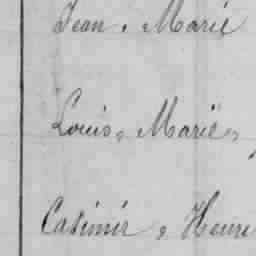 Jean, Marie
Louis, Marie,
Casimir, Henri